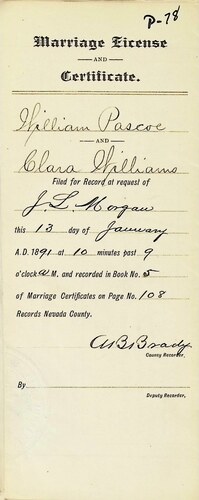 P-78
Marriage License
AND
Certificate.
William Pascoe
AND
Clara Williams
Filed for Record at request of
J. L. Morgan
this 13 day of January
A.D. 1891 at 10 minutes past 9
o'clock A.M. and recorded in Book No. 5
of Marriage Certificates on Page No. 108
Records Nevada County.
A B Brady
County Recorder.
By
Deputy Recorder.